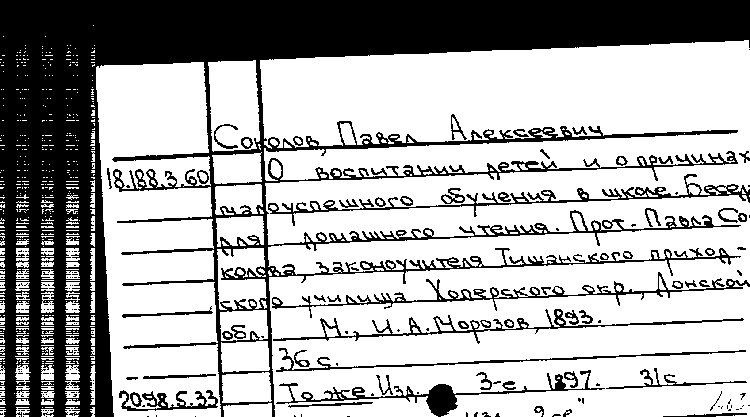 Соколов, Павел Алексеевич
18.188.3.60 О воспитании детей и о причинах
малоуспешного обучения в школе. Бесед
для домашнего чтения. Прот. Павла Со
колова, законоучителя Тишанского приход-
ского училища Хоперского окр., Донской
обл. М., И.А. Морозов, 1893.
36 с.
2098.5.33 То же. Изд. 3-е. 1897. 31 с.